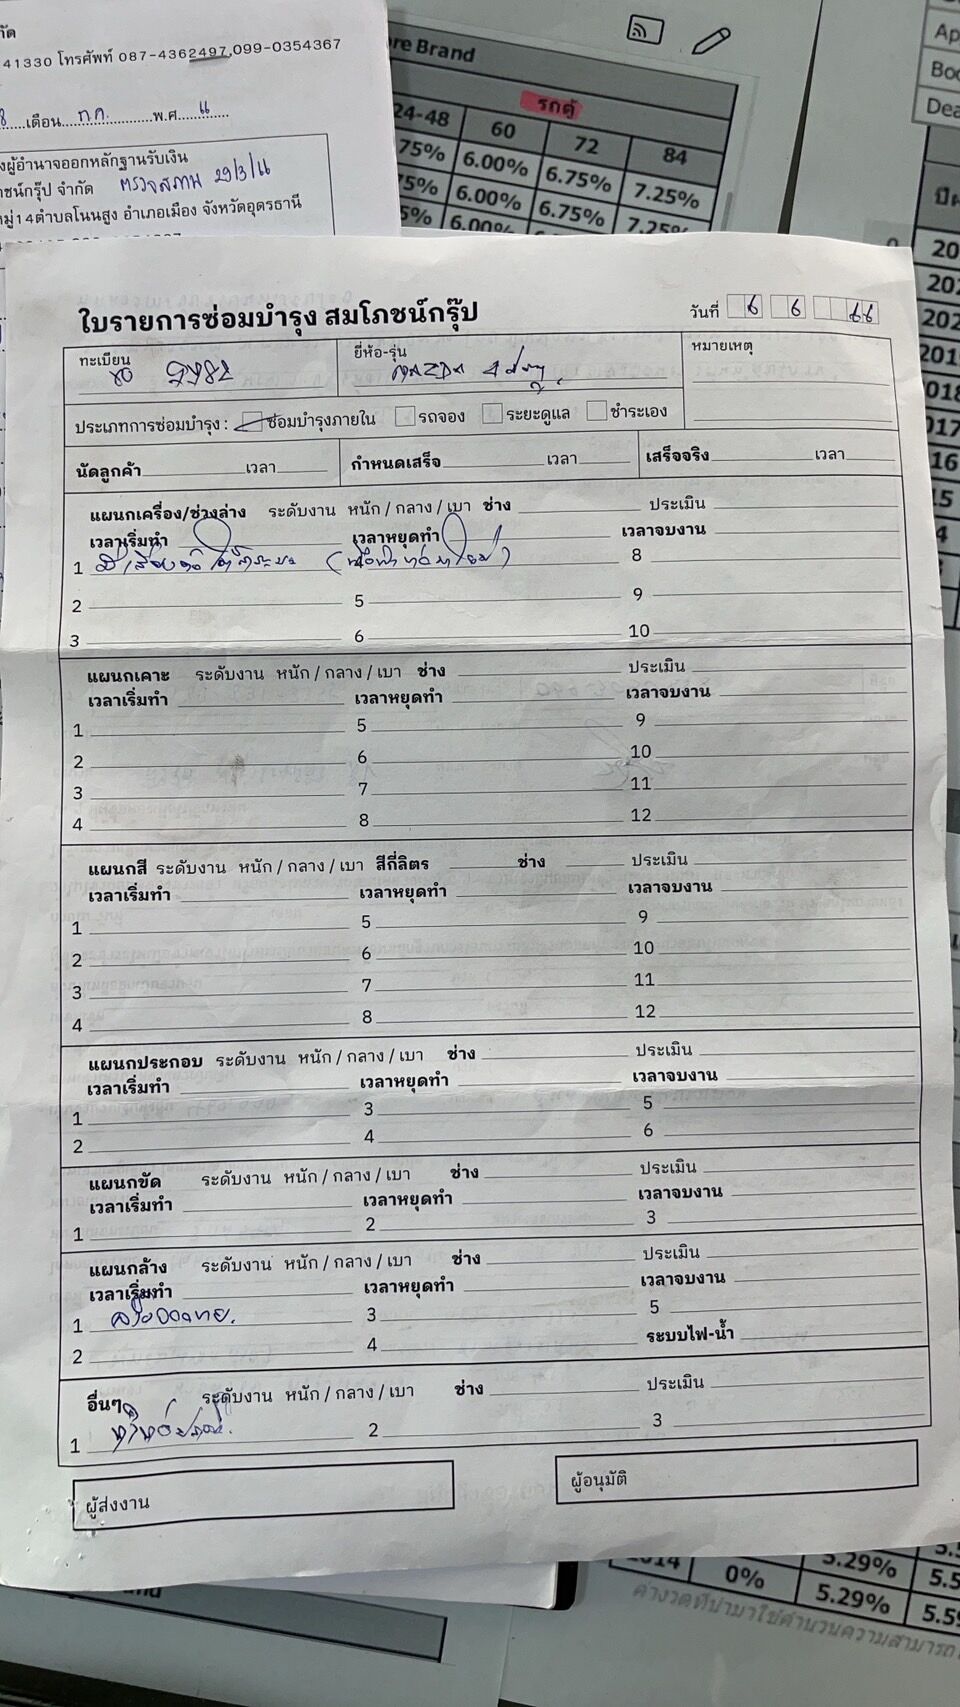 กัด
41330 โทรศัพท์ 087-4362497,099-0354367
8 เดือน ก.ค. พ.ศ.
งผู้อำนาจออกหลักฐานรับเงิน
าชน์กรุ๊ป จำกัด ตรวจสภาพ 29/3/66
หมู่14ตำบลโนนสูง อำเภอเมือง จังหวัดอุดรธานี
ore Brand
รถตู้
24-48 60 72 84
75% 6.00% 6.75% 7.25%
75% 6.00% 6.75% 7.25%
5%
Ap
Boo
Dea
ปีผ
20
202
202
2019
2018
017
16
15
4
ใบรายการซ่อมบำรุง สมโภชน์กรุ๊ป
วันที่ 6 6 66
ทะเบียน
ยี่ห้อ-รุ่น MAZDA 4ประตู
หมายเหตุ
ประเภทการซ่อมบำรุง : ซ่อมบำรุงภายใน รถจอง ระยะดูแล ชำระเอง
นัดลูกค้า เวลา กำหนดเสร็จ เวลา เสร็จจริง เวลา
แผนกเครื่อง/ช่วงล่าง ระดับงาน หนัก / กลาง / เบา ช่าง ประเมิน
เวลาเริ่มทำ เวลาหยุดทำ เวลาจบงาน
1 มีเสียงดังใต้กระบะ 8
2 5 9
3 6 10
แผนกเคาะ ระดับงาน หนัก / กลาง / เบา ช่าง ประเมิน
เวลาเริ่มทำ เวลาหยุดทำ เวลาจบงาน
1 5 9
2 6 10
3 7 11
4 8 12
แผนกสี ระดับงาน หนัก / กลาง / เบา สีกี่ลิตร ช่าง ประเมิน
เวลาเริ่มทำ เวลาหยุดทำ เวลาจบงาน
1 5 9
2 6 10
3 7 11
4 8 12
แผนกประกอบ ระดับงาน หนัก / กลาง / เบา ช่าง ประเมิน
เวลาเริ่มทำ เวลาหยุดทำ เวลาจบงาน
1 3 5
2 4 6
แผนกขัด ระดับงาน หนัก / กลาง / เบา ช่าง ประเมิน
เวลาเริ่มทำ เวลาหยุดทำ เวลาจบงาน
1 2 3
แผนกล้าง ระดับงาน หนัก / กลาง / เบา ช่าง ประเมิน
เวลาเริ่มทำ เวลาหยุดทำ เวลาจบงาน
1 ล้างออกขาย. 3 5
2 4 ระบบไฟ-น้ำ
อื่นๆ ระดับงาน หนัก / กลาง / เบา ช่าง ประเมิน
1 2 3
ผู้ส่งงาน
ผู้อนุมัติ
2014 0% 5.29% 5.5
5.29% 5.59
ค่างวดที่นำมาใช้คำนวนความสามารถ